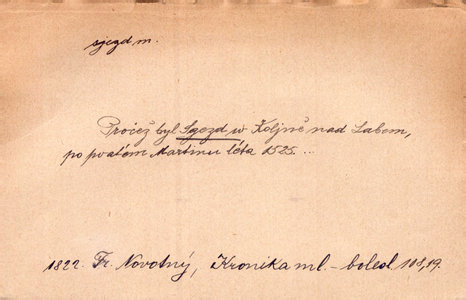 sjezd m.
Pročež byl Sgezd w Koljně nad Labem,
po swatém Martinu léta 1525...
1822 Fr. Novotný, Kronika ml.-bolesl. 108,19.